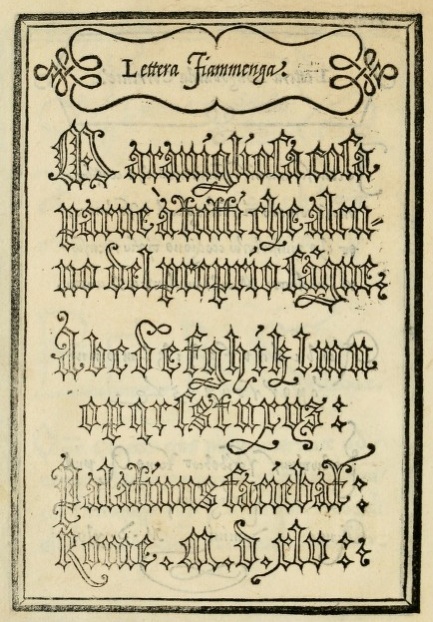 Lettera Fiammenga.
Marauiglioſa coſa
parue à tutti che alcu-
no del proprio ſāgue;
Abcdefghiklmn
opqrſstuxyz:
Palatinus faciebat:
Rome . M. d. xlv ::